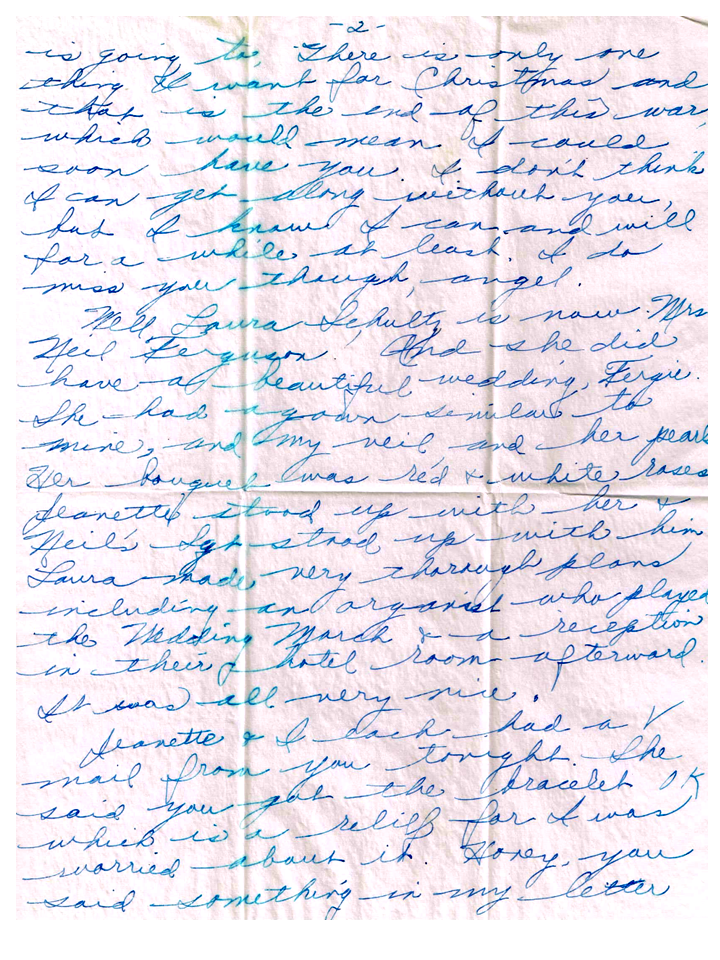 -2-
is going to. There is only one
thing I want for Christmas and
that is the end of this war,
which would mean I could
soon have you. I don't think
I can get along without you,
but I know I can and will
for a while at least. I do
miss you though, angel.
Well Laura Schultz is now Mrs
Neil Ferguson. And she did
have a beautiful wedding, Fergie.
She had a gown similar to
mine, and my veil, and her pearls
Her bouquet was red & white roses
Jeanette stood up with her &
Neil's Sgt stood up with him
Laura made very thorough plans
including an organist who played
the Wedding March & a reception
in their hotel room afterward.
It was all very nice.
Jeanette & I each had a V
mail from you tonight. She
said you got the bracelet OK
which is a relief for I was
worried about it. Honey, you
said something in my letter